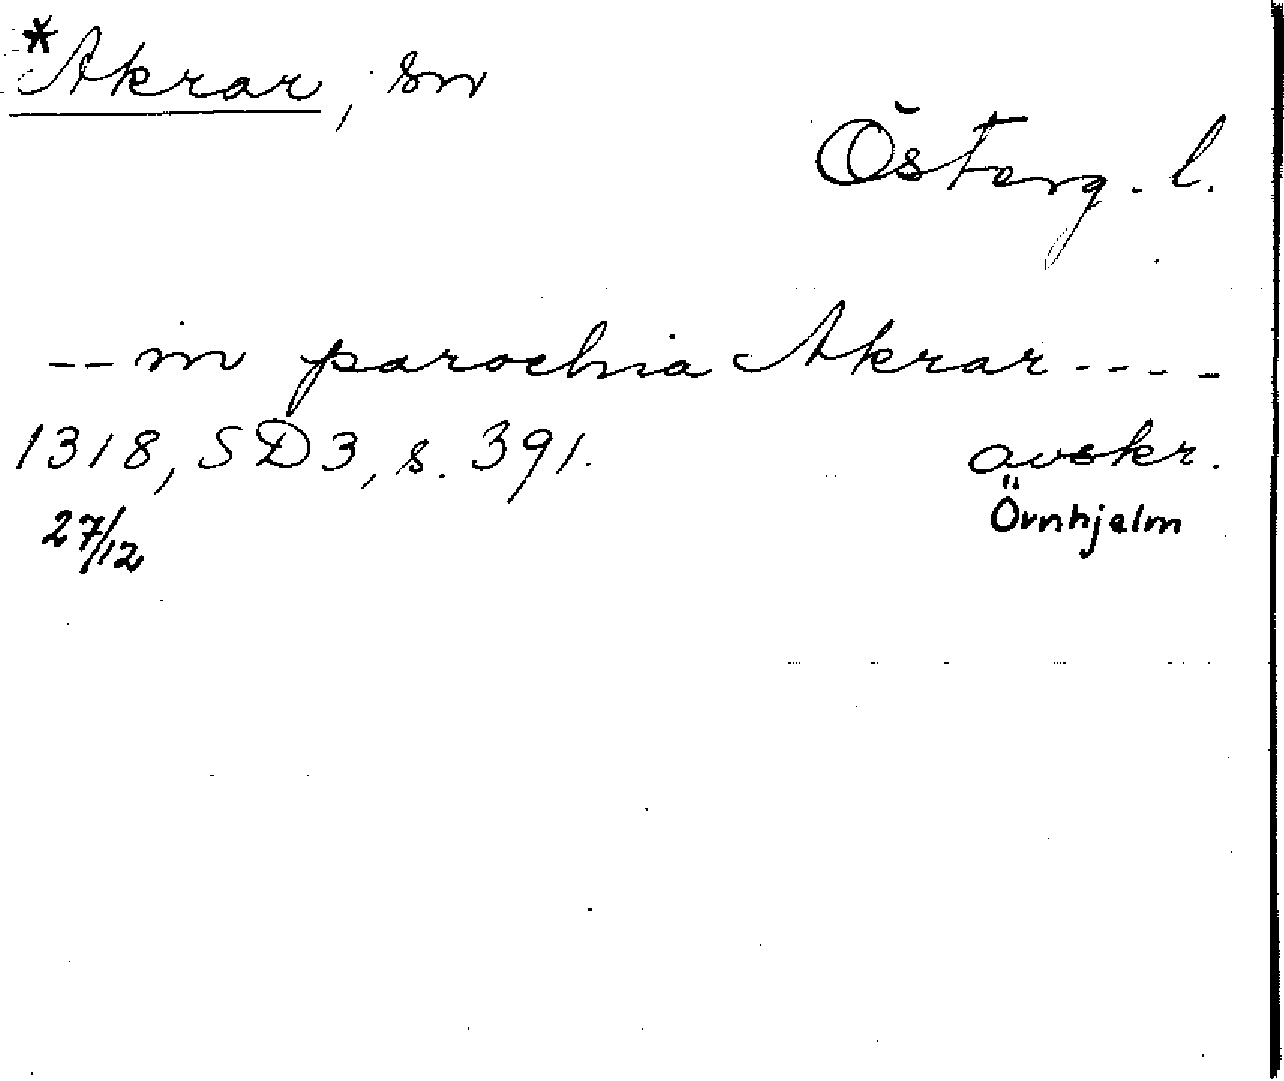 *Akrar, sn
Österg. l.
-- in parochia Akrar ----
1318, SD3, s. 391. avskr.
27/12 Örnhjelm